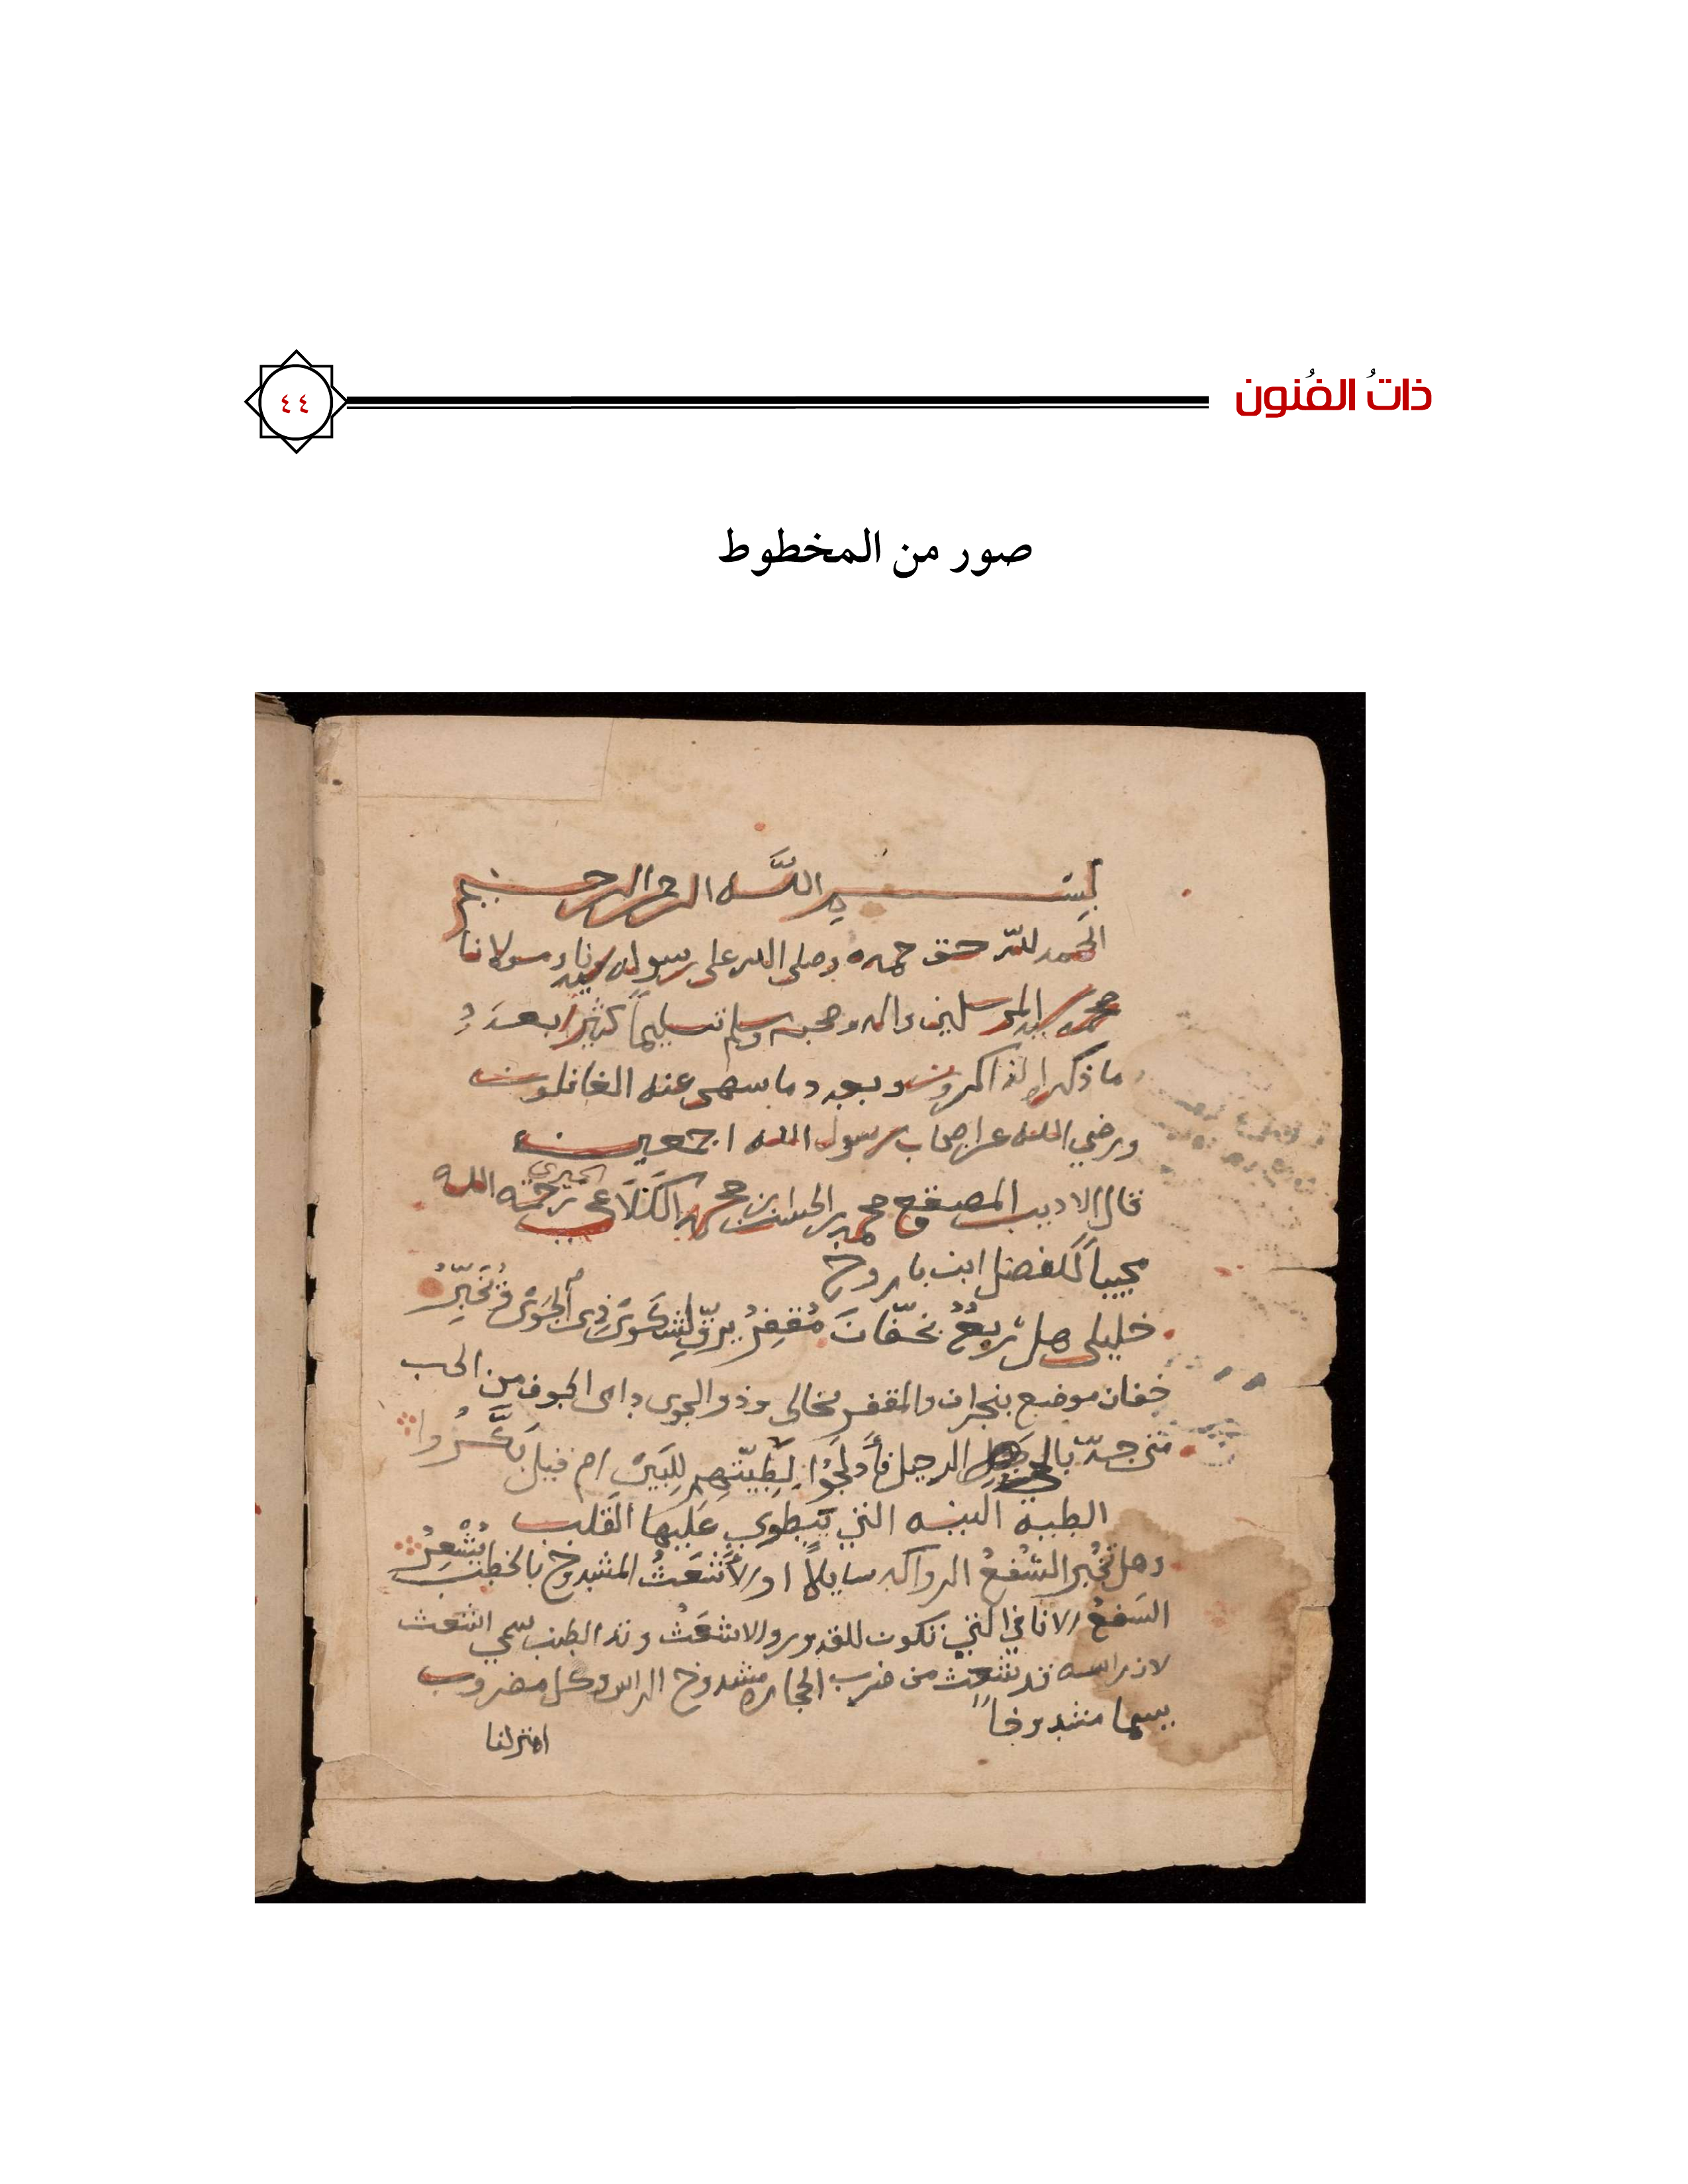 ذاتُ الفُنون
٤٤
صور من المخطوط
بسم الله الرحمن الرحيم
الحمد لله حق حمده وصلى الله على رسوله سيدنا ومولانا
محمد سيد المرسلين واله وصحبه وسلم تسليماً كثيرا بعدد
ما ذكره الذاكرون وبعدد ما سهى عنه الغافلون
ورضي الله عن اصحاب رسول الله اجمعين
قال الاديب المصقع محمد بن الحسن بن محمد الكَلَاعي الحميري رحمه الله
مجيباً للفضل ابن باروخ
خليلى هل رَبعٌ بخفّانَ مُقفِرُ يرقّ لشكوى ذى الجَوى فيُخَبِّرُ
خفان موضع بنجران والمقفر الخالى وذو الجوى داى الجوف من الحب
متى جدّ بالحي الرحيل فأدلجَوا لطِيّتهم لِلبَين ام قبل بَكَّرُوا
الطية النيه التي ينطوي عليها القلب
وهل تخبر السُفعُ الرواكد سايلاً او الأشعَثُ المشدوخ بالخطب يُشْعِرُ
السَفعُ الاثافي التي تكون للقدور والاشعَثُ وتد الطنب سمي اشعث
لان راسه قد تشعث من ضرب الحجاره مشدوخ الراس وكل مضروب
يسما مشدوخاً
امنزلنا